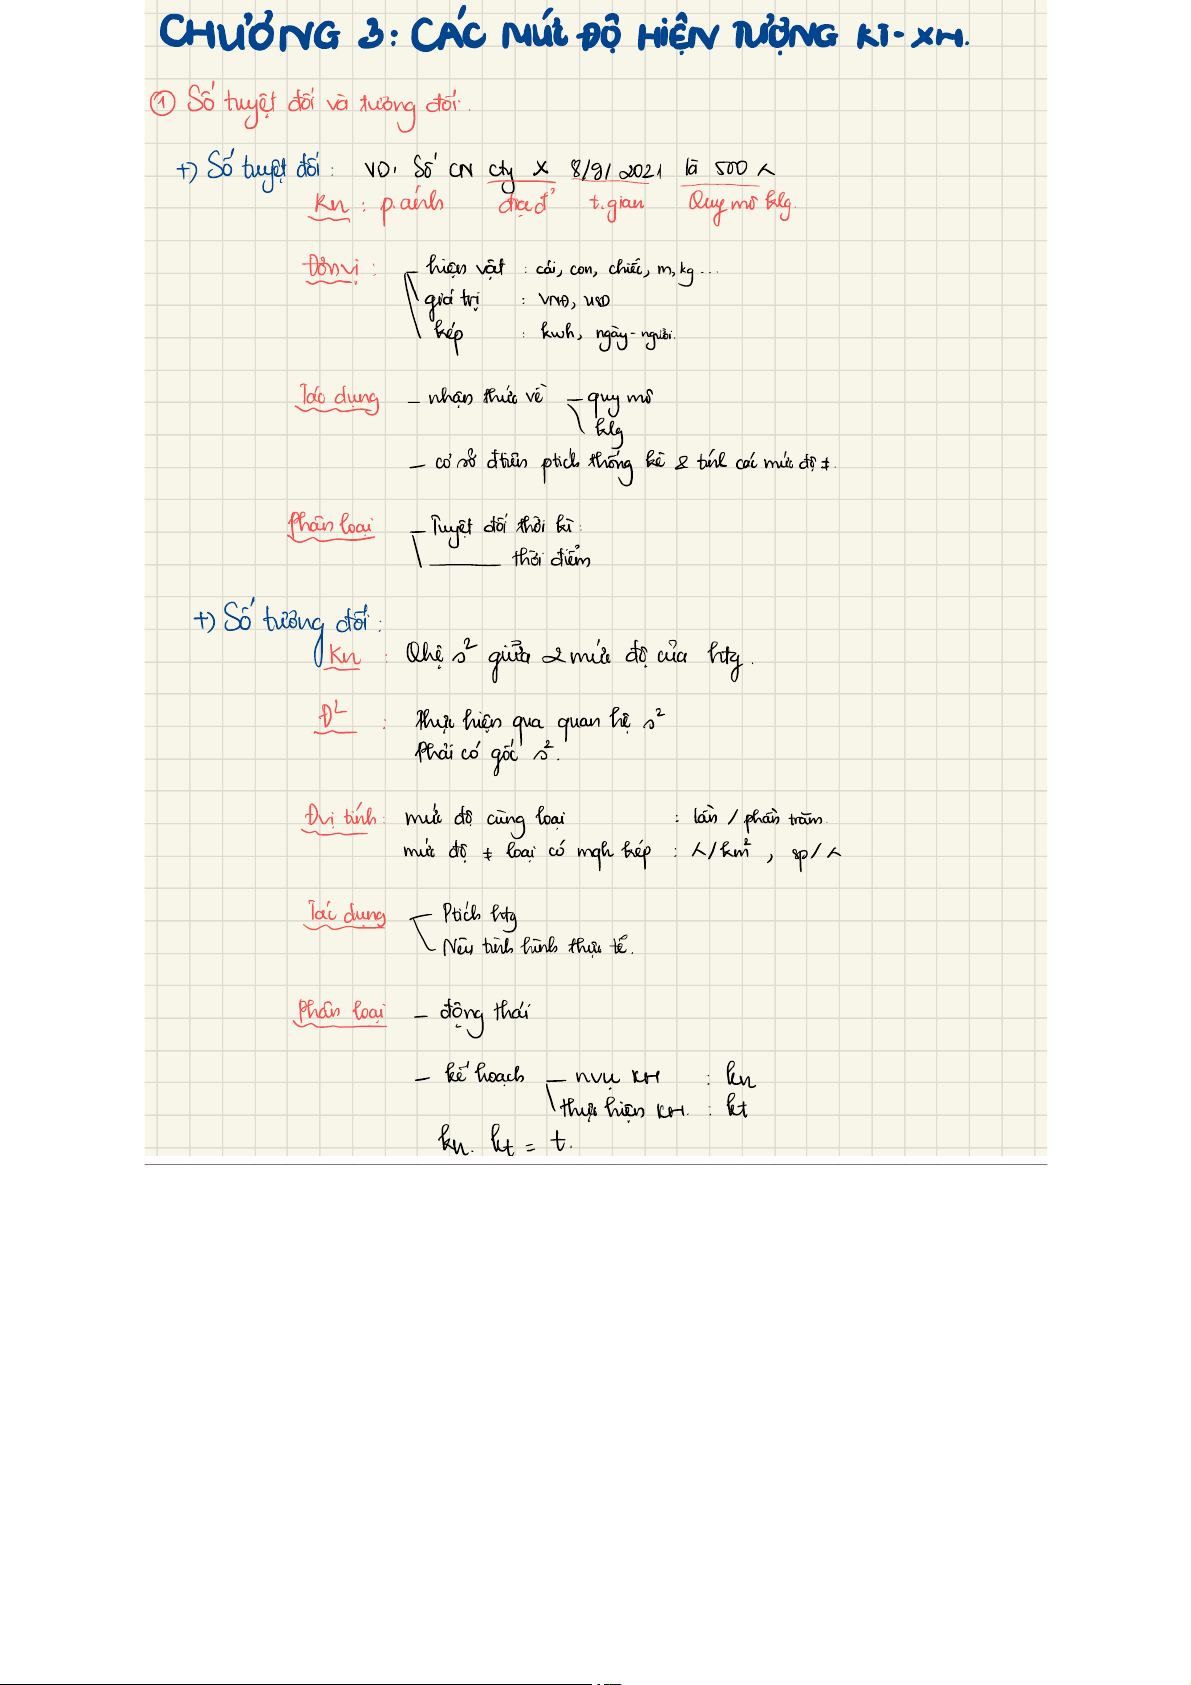 CHƯƠNG 3: CÁC MỨC ĐỘ HIỆN TƯỢNG KT-XH.
① Số tuyệt đối và tương đối.
+) Số tuyệt đối: VD: Số CN cty X 8/9/2021 là 500 人
Kn: p.ánh địa đ' t.gian Quy mô klg.
Đơn vị: - hiện vật: cái, con, chiếc, m, kg...
giá trị: VNĐ, USD
kép: kwh, ngày-người.
Tác dụng - nhận thức về - quy mô
klg
- cơ sở đtiên ptích thống kê & tính các mức độ ≠.
Phân loại - Tuyệt đối thời kì:
______ thời điểm
+) Số tương đối:
Kn: Qhệ s² giữa 2 mức độ của htg.
Đ²: Thực hiện qua quan hệ s²
Phải có gốc s².
Đvị tính: mức độ cùng loại: lần / phần trăm.
mức độ ≠ loại có mqh kép: 人/km², sp/人
Tác dụng - Ptích htg
- Nêu tình hình thực tế.
Phân loại - động thái
- kế hoạch - nvụ KH: kn
thực hiện KH.: kt
kn. kt = t.